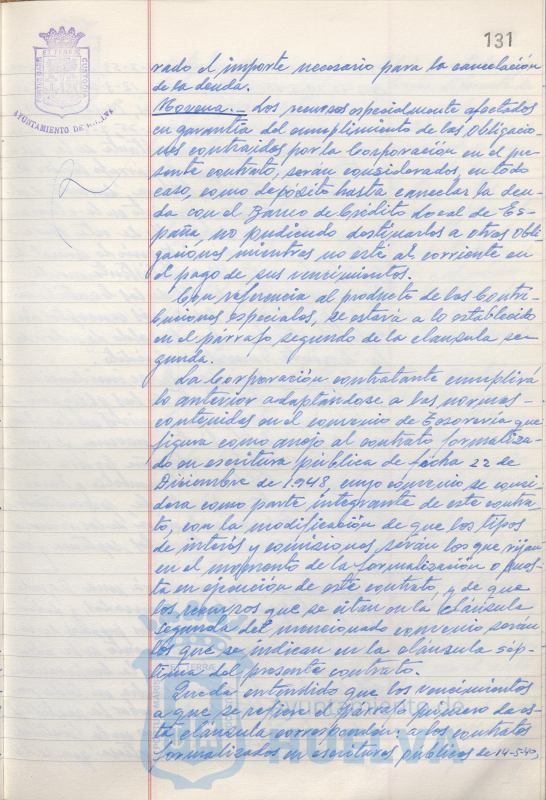 131
AYUNTAMIENTO DE HUELVA
rado el importe necesario para la cancelación
de la deuda.
Novena.- Los recursos especialmente afectados
en garantía del cumplimiento de las Obligacio-
nes contraídas por la Corporación en el pre-
sente contrato, serán considerados, en todo
caso, como depósito hasta cancelar la deu-
da con el Banco de Crédito Local de Es-
paña, no pudiendo destinarlos a otras Obli-
gaciones mientras no esté al corriente en
el pago de sus vencimientos.
Con referencia al producto de las Contri-
buciones especiales, se estará a lo establecido
en el párrafo segundo de la cláusula se-
gunda.
La Corporación contratante cumplirá
lo anterior adaptándose a las normas-
contenidas en el convenio de Tesorería que
figura como anejo al contrato formaliza-
do en escritura pública de fecha 22 de
Diciembre de 1.948, cuyo convenio se consi-
dera como parte integrante de este contra-
to, con la modificación de que los tipos
de interés y comisiones serán los que rijan
en el momento de la formalización o pues-
ta en ejecución de este contrato, y de que
los recursos que se citan en la Cláusula
segunda del mencionado convenio serán
los que se indican en la cláusula sép-
tima del presente contrato.
Queda entendido que los vencimientos
a que se refiere el párrafo primero de es-
ta cláusula corresponden: a los contratos
formalizados en escrituras públicas de 14-5-40,
Ayuntamiento de
HUELVA